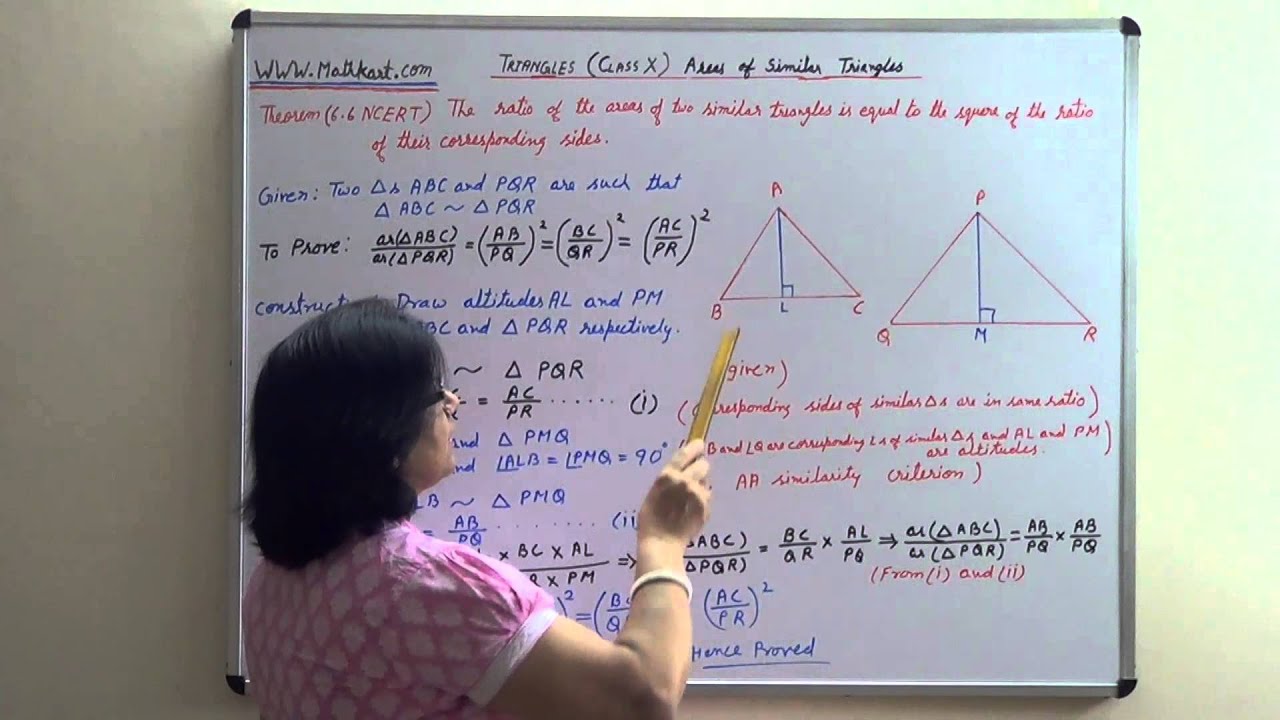 WWW.Mathkart.com
TRIANGLES (CLASS X) Areas of Similar Triangles
Theorem (6.6 NCERT) The ratio of the areas of two similar triangles is equal to the square of the ratio
of their corresponding sides.
Given: Two Δs ABC and PQR are such that
Δ ABC ~ Δ PQR
To Prove: ar(ΔABC)/ar(ΔPQR) = (AB/PQ)² = (BC/QR)² = (AC/PR)²
Draw altitudes AL and PM
BC and Δ PQR respectively.
~ Δ PQR
given)
= AC/PR ...... (i)
responding sides of similar Δs are in same ratio)
and Δ PMQ
and ∠ALB = ∠PMQ = 90°
B and ∠Q are corrusponding ∠s of similar Δs and AL and PM)
are altitudes.
LB ~ Δ PMQ
AA similarity criterion)
= AB/PQ ........ (ii
× BC × AL
× PM
⇒
ABC)/ΔPQR) = BC/QR × AL/PQ ⇒ ar(ΔABC)/ar(ΔPQR) = AB/PQ × AB/PQ
(From (i) and (ii)
)² = (BC (AC/PR)²
Hence Proved
A
B
L
C
P
Q
M
R